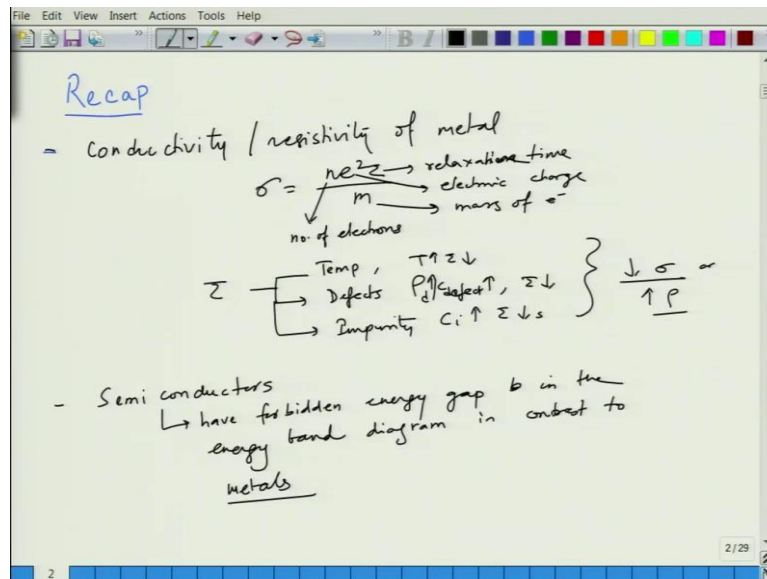 File Edit View Insert Actions Tools Help
Recap
- Conductivity / resistivity of metal
σ = ne²τ → relaxation time
→ electric charge
m → mass of e⁻
no. of electrons
τ — Temp, T↑ τ↓
→ Defects ρd↑/Cdefect↑, τ↓
→ Impurity Ci↑ τ↓s
} ↓σ or
↑ρ
- Semiconductors
↳ have forbidden energy gap b in the
energy band diagram in contrest to
metals
2/29
2